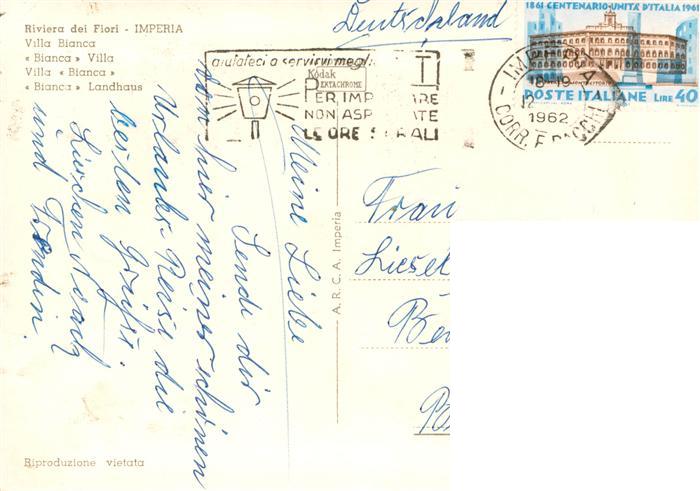 Riviera dei Fiori - IMPERIA
Villa Bianca
« Bianca » Villa
Villa « Bianca »
« Bianca » Landhaus
Deutschland
1861 CENTENARIO UNITÀ D'ITALIA 1961
POSTE ITALIANE LIRE 40
18-19
12
1962
CORR. E PACCHI
aiutateci a servirvi meglio
Kodak
EKTACHROME
PER IMPOSTARE
NON ASPETTATE
LE ORE SERALI
Meine Liebe
Sende dir
von hier meiner schönen
Urlaubs-Reise die
besten Grüße.
und Freundin.
A.R.C.A. Imperia
Frau
Liesel
Riproduzione vietata